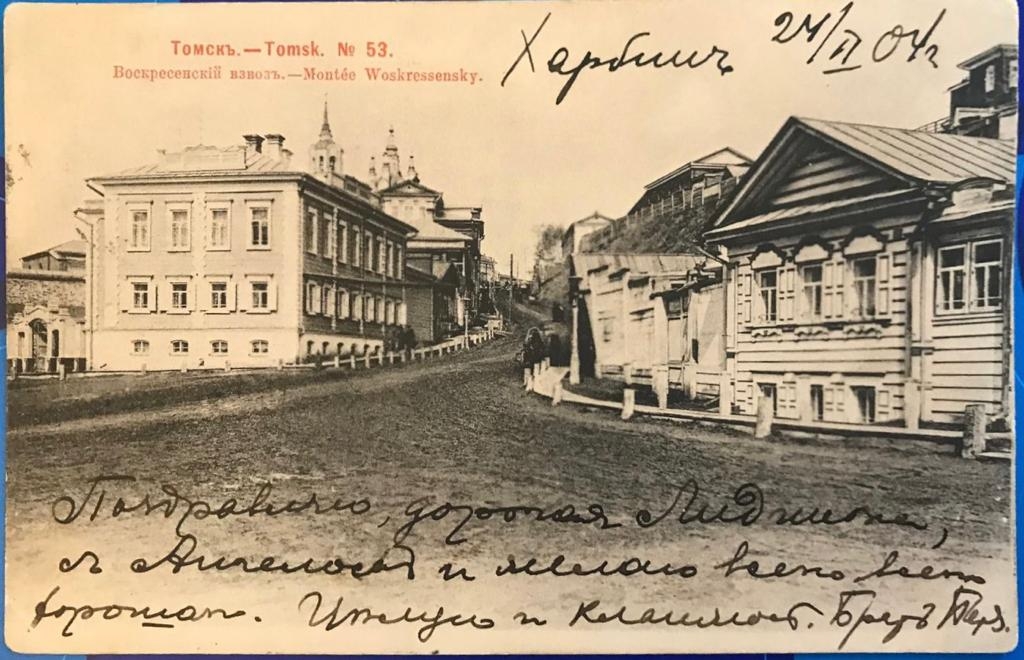 Томскъ.—Tomsk. № 53.
Воскресенскій взвозъ.—Montée Woskressensky.
Харбинъ 24/II 04г
Поздравляю, дорогая Лидишка,
съ Ангеломъ и желаю всего всего
хорошаго. Цѣлую и кланяюсь. Братъ